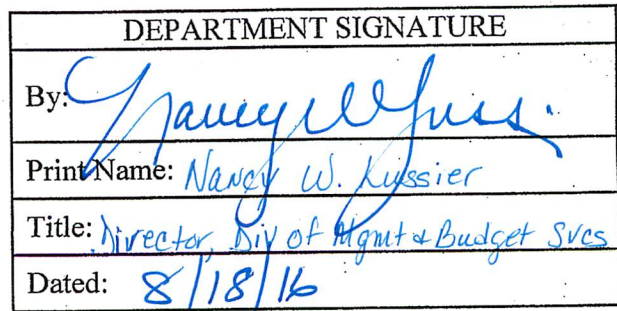 DEPARTMENT SIGNATURE
By: Nancy W
Print Name: Nancy W. Kussier
Title: Director, Div of Mgmt & Budget Svcs
Dated: 8/18/16